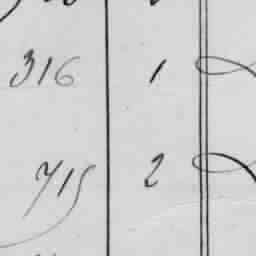 316 1
715 2